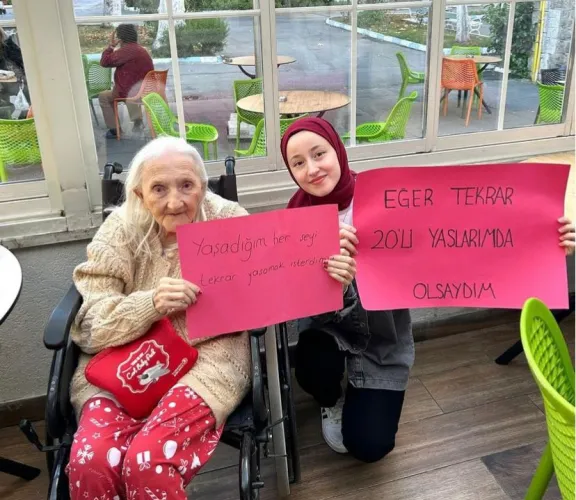 EĞER TEKRAR
20'Lİ YAŞLARIMDA
OLSAYDIM
Yaşadığım her şeyi
tekrar yaşamak isterdim